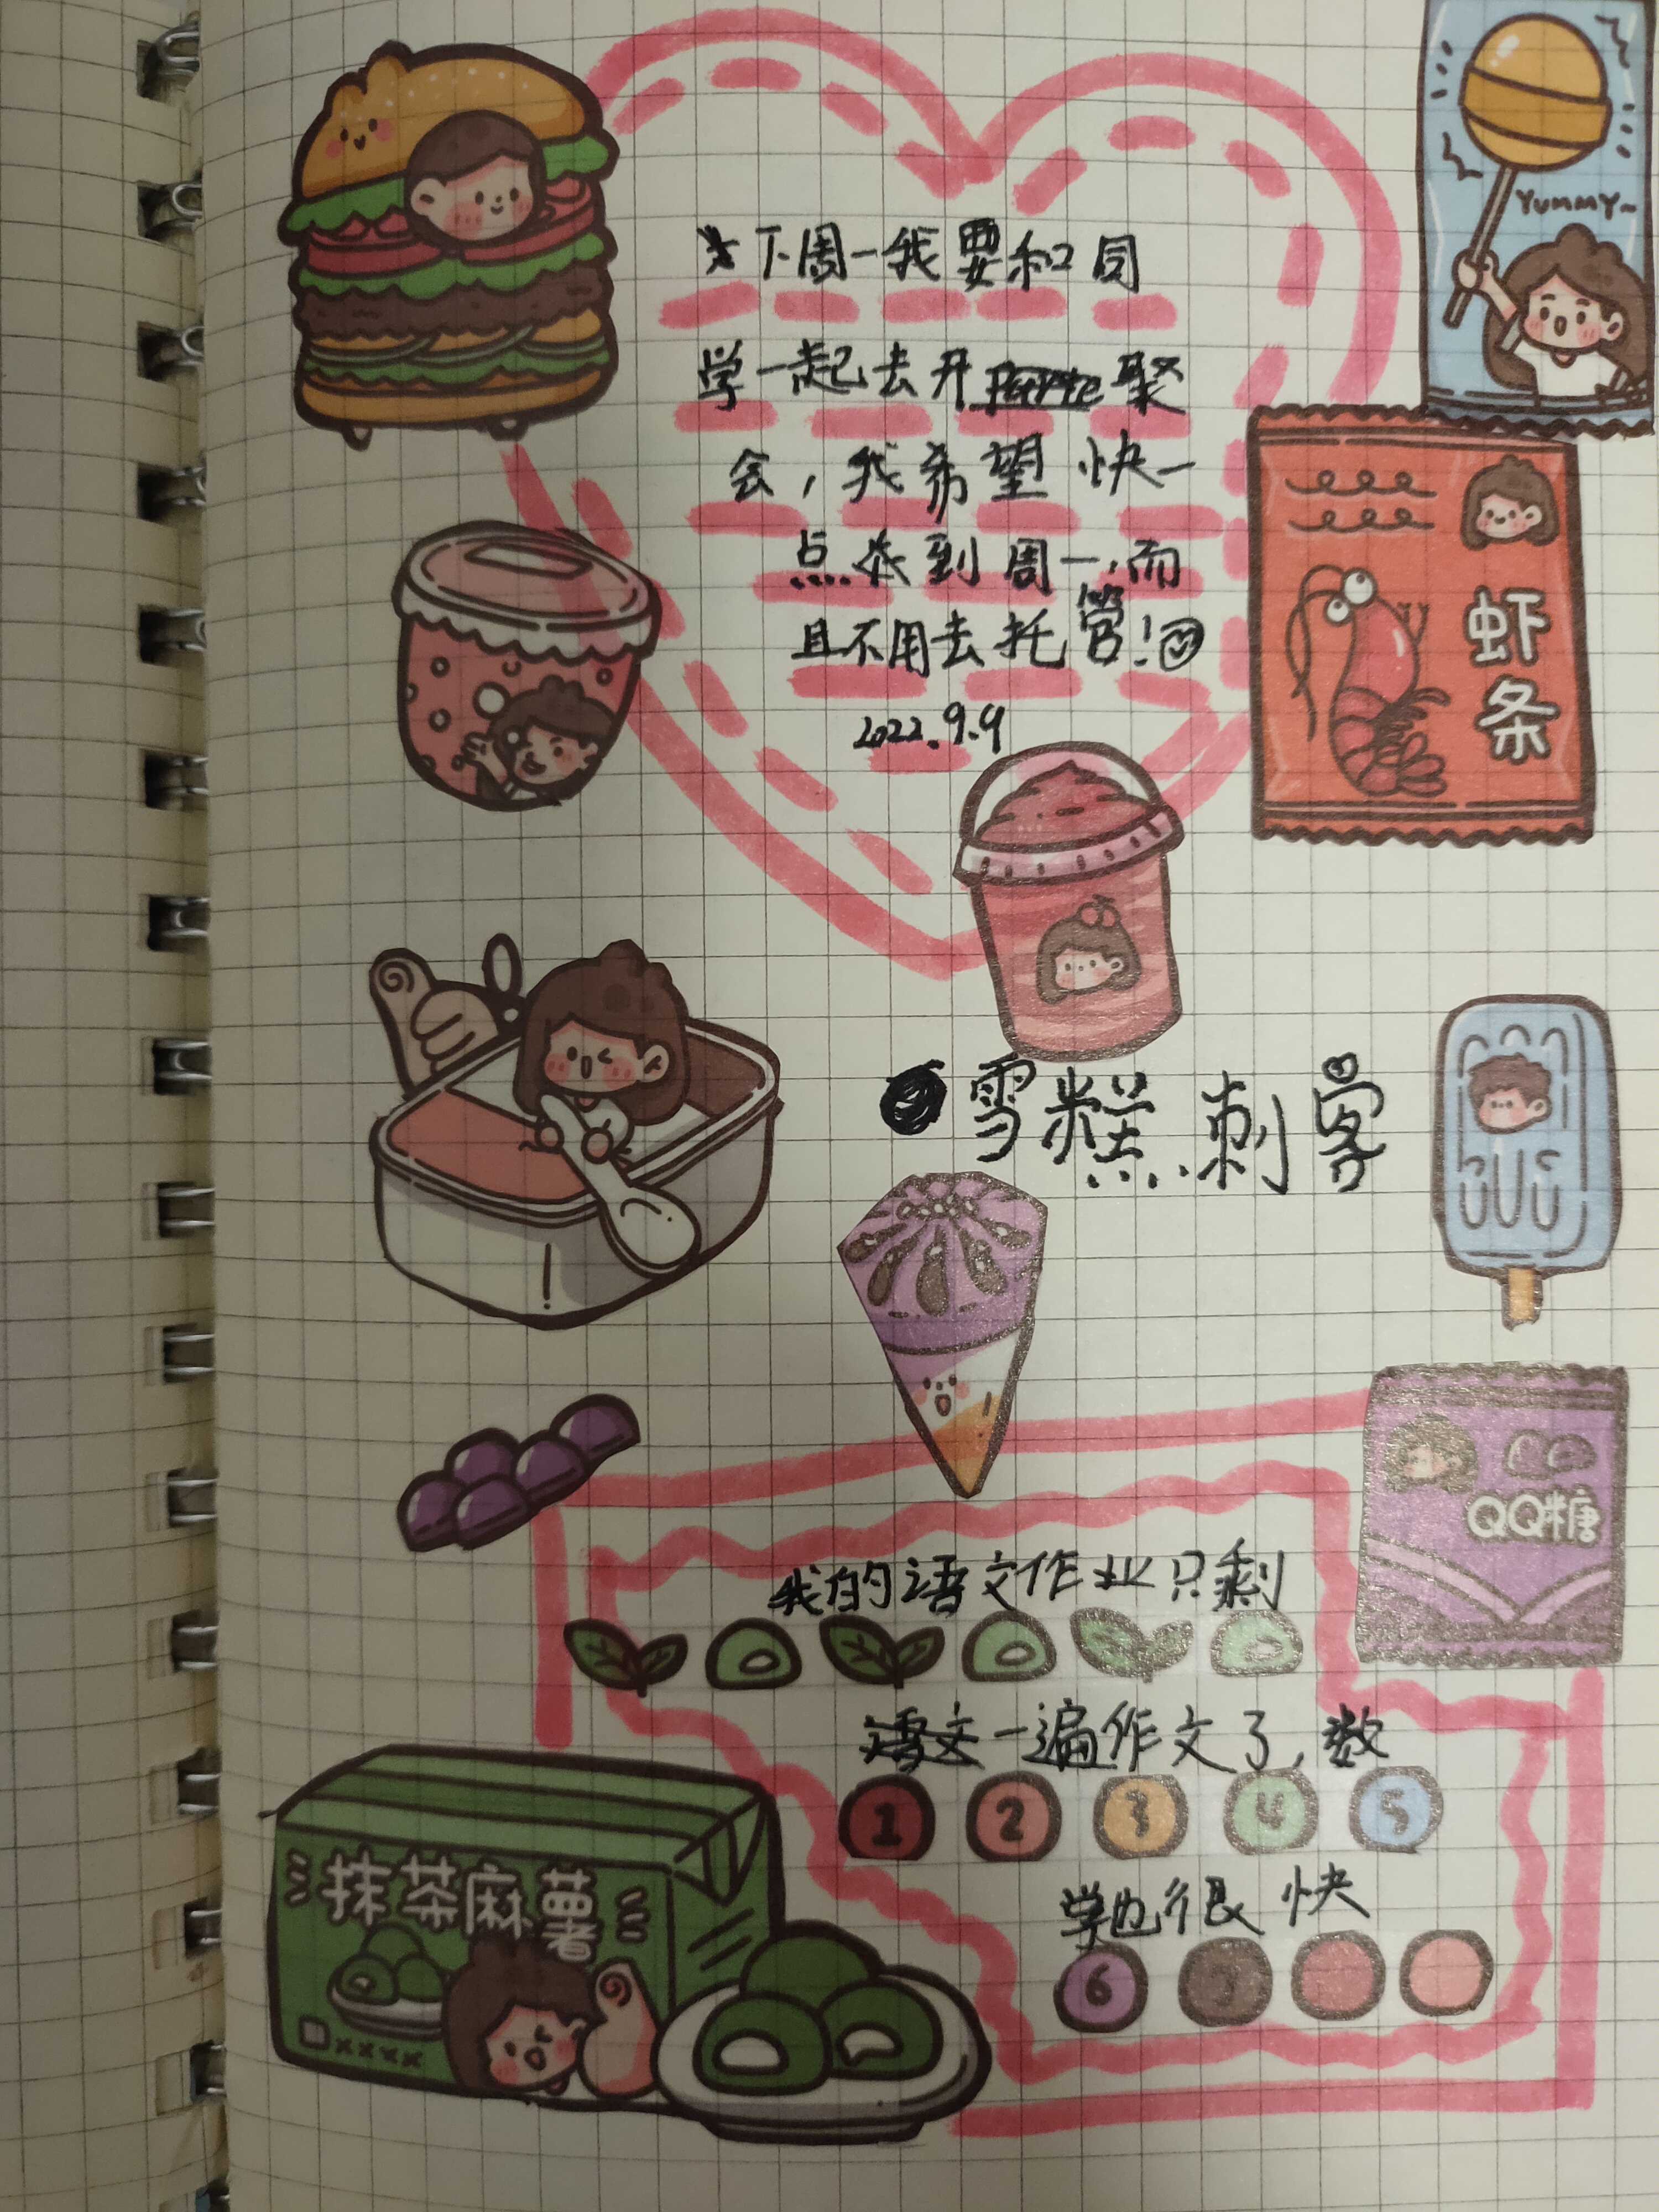 下周一我要和同
YUMMY~
学一起去开Parte聚
会，我希望快一
点张到周一，而
虾
条
且不用去托管！
2022.9.9
雪糕刺客
QQ糖
我的语文作业只剩
语文一遍作文了，数
1 2 3 4 5
学也很快
抹茶麻薯
6 7
xxxx